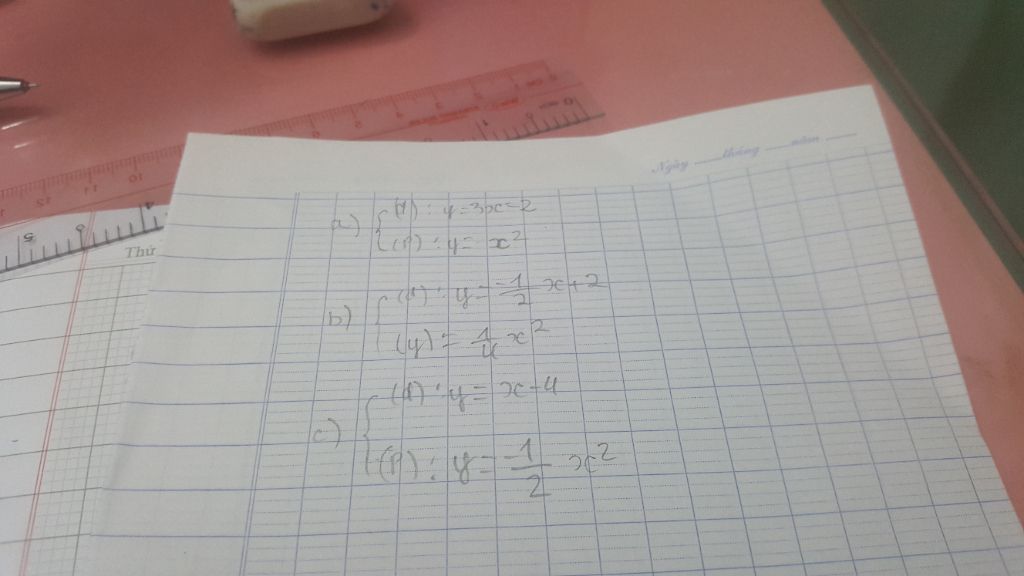 Ngày tháng năm
Thứ
a) { (d) : y = 3x = 2
(P) : y = x²
b) { (d) : y = -1/2 x + 2
(y) = 1/4 x²
c) { (d) : y = x - 4
(P) : y = -1/2 x²